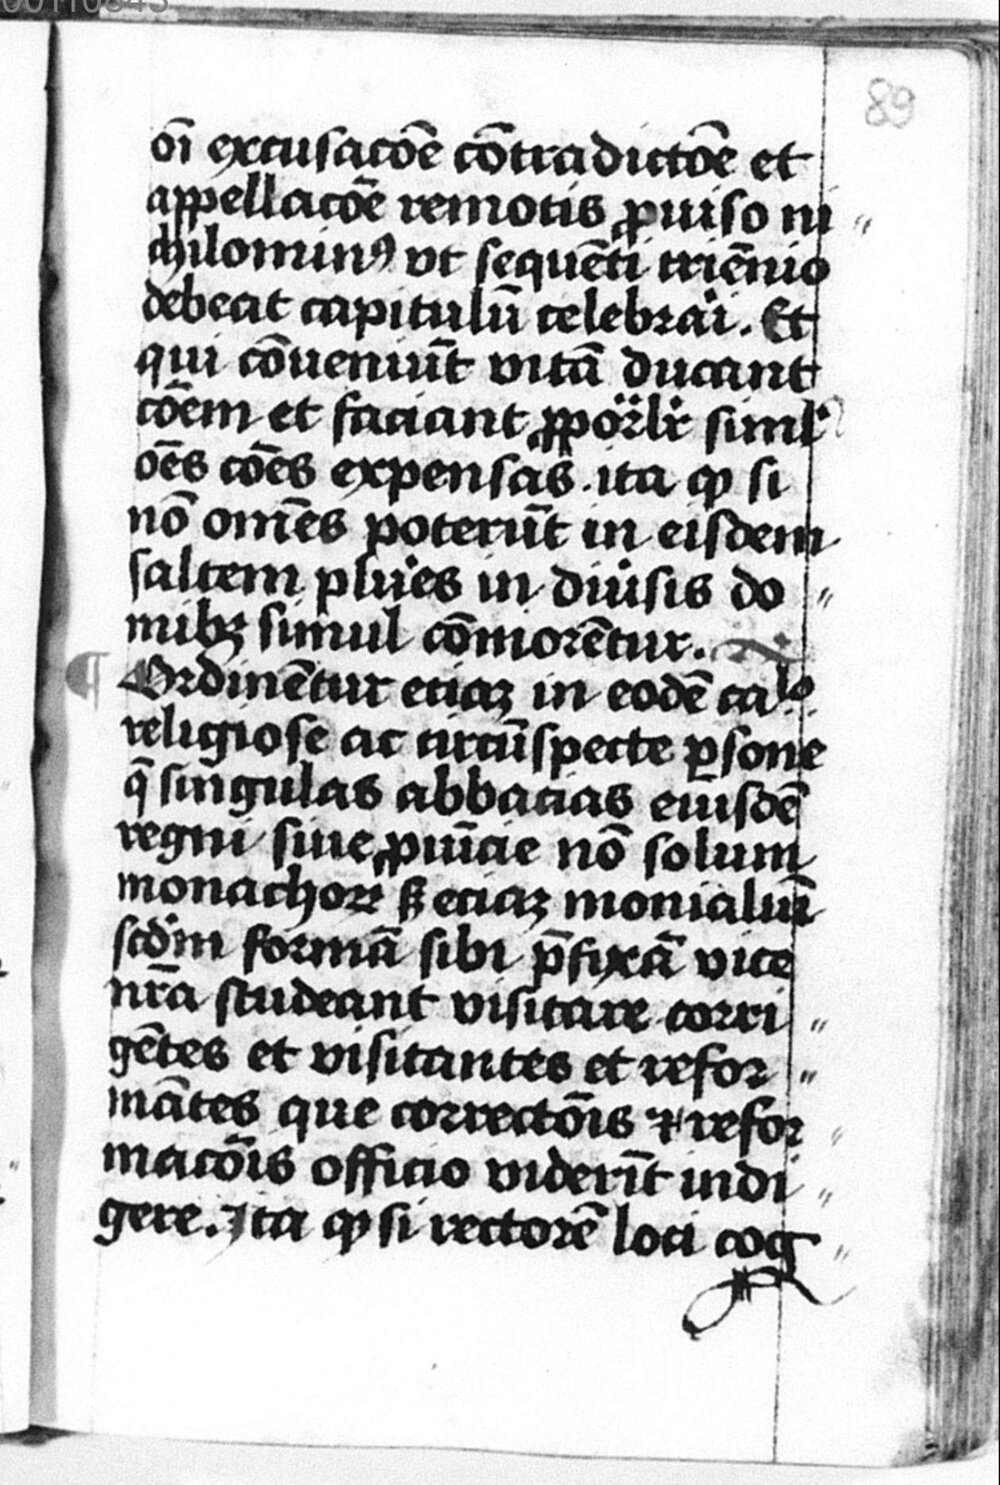 89
oı̄ excusacōe cōtradictōe et
appellacōe remotis ꝓuiso ni〃
chilominꝰ vt sequēti triēnio
debeat capitulū celebrari. Et
qui cōueniūt vitā ducant
cōem et faciant ꝓporlr siml
oēs cōes expensas. ita ꝙ si
nō omēs poterūt in eisdem
saltem plures in diuisis do〃
mibꝫ simul cōmorētur.
¶ Ordinētur eciaꝫ in eodē caplo
religiose ac circūspecte ꝑsone
q̄ singulas abbacias eiusdē
regni siue ꝓuīcie nō solum
monachoꝝ sꝫ eciaꝫ monialiū
scdm formā sibi p̄fixā vice
nr̄a studeant visitare corri〃
gētes et visitantes et refor〃
mātes que correctōis ⁊ refor〃
macōis officio viderīt indi〃
gere. Ita ꝙ si rectorē loci cog〃